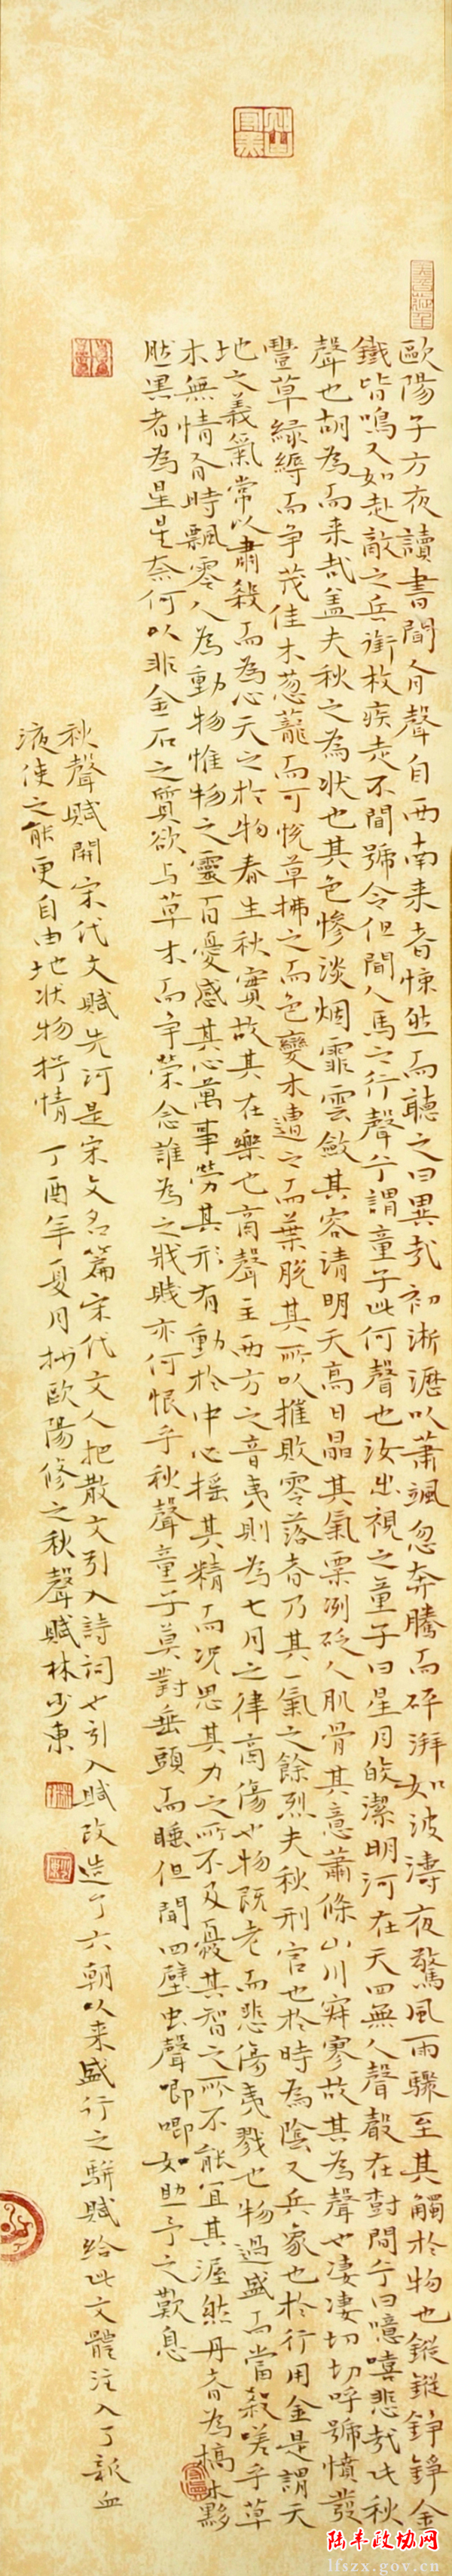 歐陽子方夜讀書聞有聲自西南来者悚然而聽之曰異哉初淅瀝以蕭颯忽奔騰而砰湃如波濤夜驚風雨驟至其觸於物也鏦鏦錚錚金
鐵皆鳴又如赴敵之兵銜枚疾走不聞號令但聞人馬之行聲予謂童子此何聲也汝出視之童子曰星月皎潔明河在天四無人聲聲在樹間予曰噫嘻悲哉此秋
聲也胡為而来哉盖夫秋之為状也其色慘淡烟霏雲斂其容清明天高日晶其氣栗冽砭人肌骨其意蕭條山川寂寥故其為聲也凄凄切切呼號憤發
豐草緑縟而争茂佳木葱蘢而可悦草拂之而色變木遭之而葉脱其所以摧敗零落者乃其一氣之餘烈夫秋刑官也於時為陰又兵家也於行用金是謂天
地之義氣常以肅殺而為心天之於物春生秋實故其在樂也商聲主西方之音夷則為七月之律商傷也物既老而悲傷夷戮也物過盛而當殺嗟乎草
木無情有時飄零人為動物惟物之靈百憂感其心萬事勞其形有動於中心摇其精而况思其力之所不及憂其智之所不能宜其渥然丹者為槁木黟
然黑者為星星奈何以非金石之質欲与草木而争榮念誰為之戕賊亦何恨乎秋聲童子莫對垂頭而睡但聞四壁虫聲唧唧如助予之歎息
秋聲賦開宋代文賦先河是宋文名篇宋代文人把散文引入詩詞也引入賦改造了六朝以来盛行之駢賦給此文體注入了新血
液使之能更自由地状物抒情丁酉年夏月抄歐陽修之秋聲賦林少東
陆丰政协网
lfszx.gov.cn